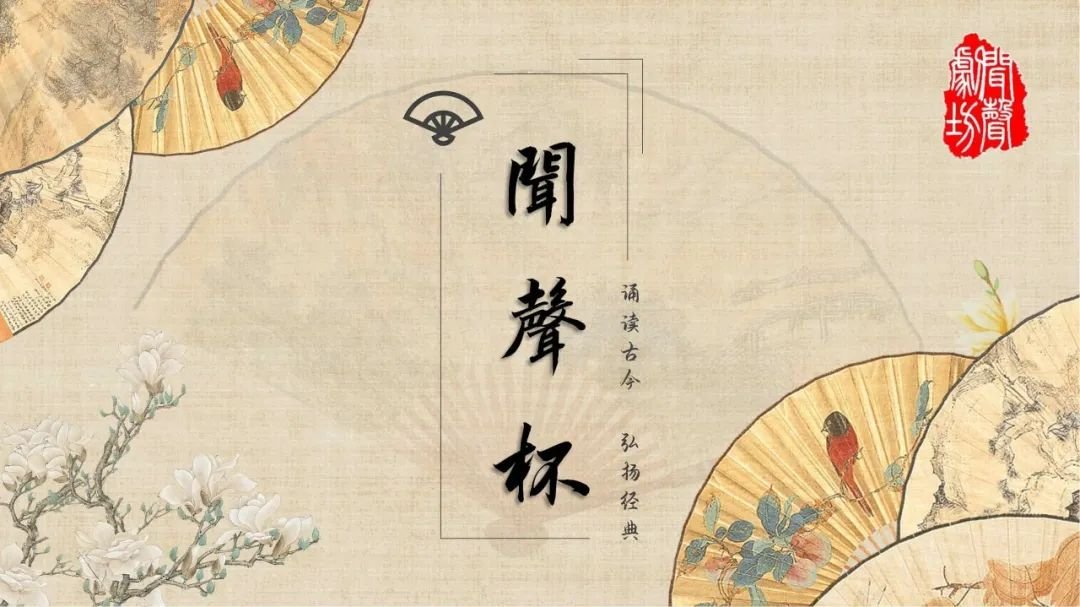 聞聲杯
诵读古今 弘扬经典
聞聲
劇坊